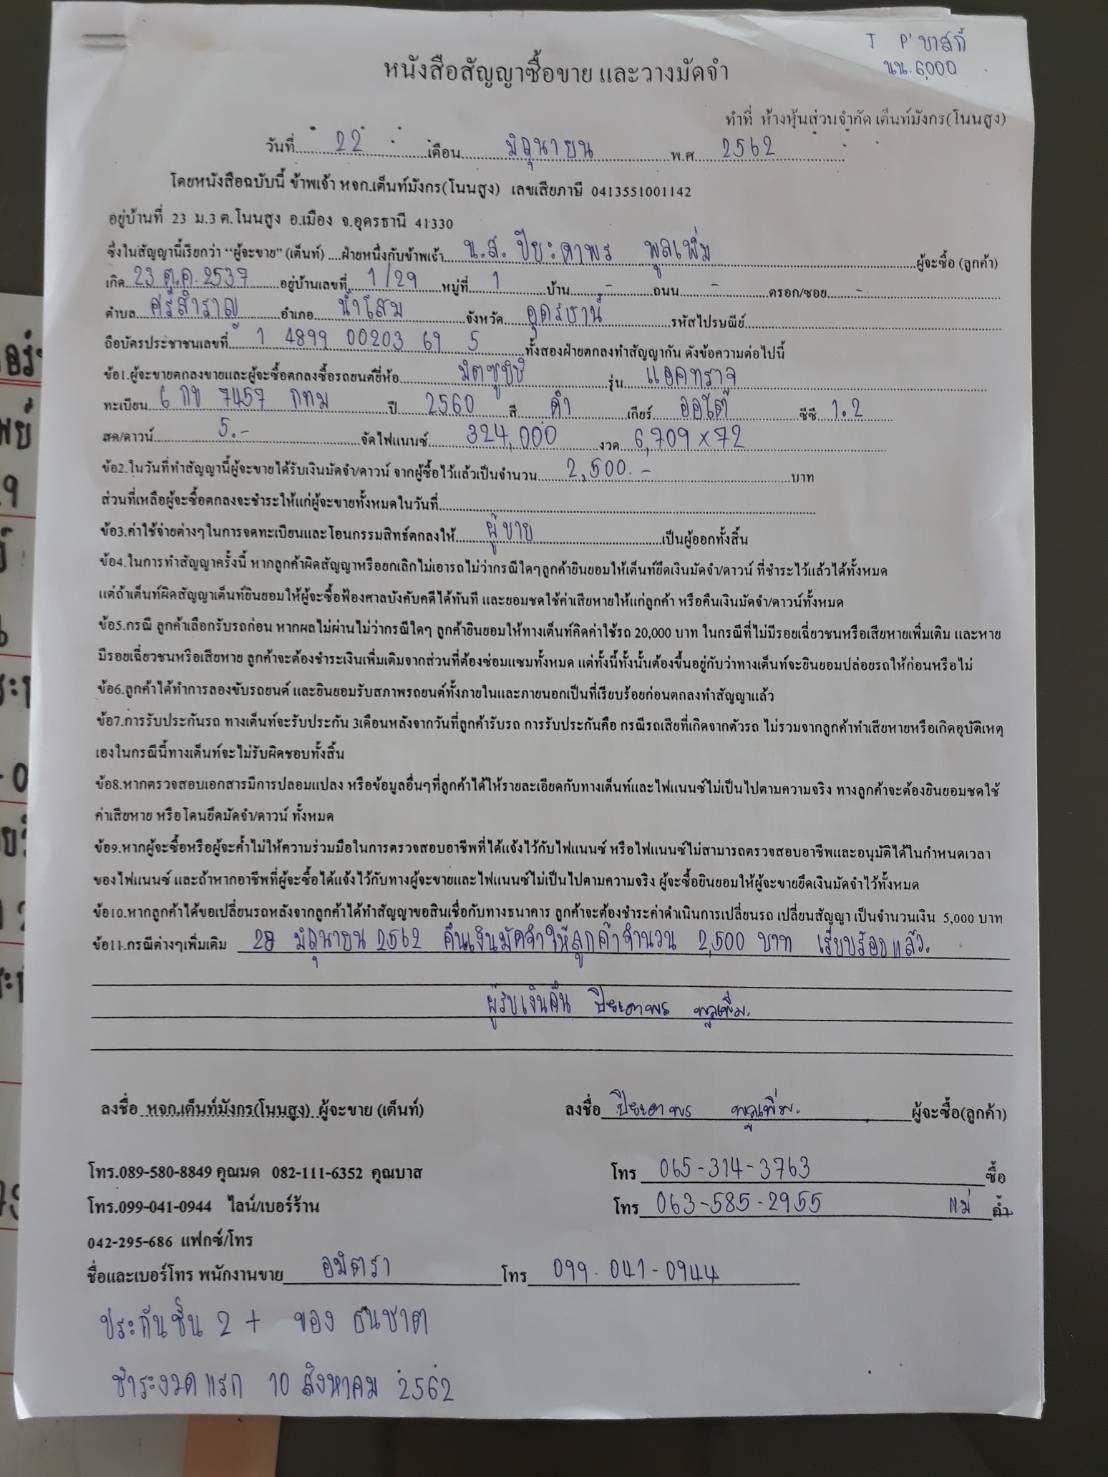 T P' บาสก์
นน. 6,000
หนังสือสัญญาซื้อขาย และวางมัดจำ
ทำที่ ห้างหุ้นส่วนจำกัด เต็นท์มังกร(โนนสูง)
วันที่ 22 เดือน มิถุนายน พ.ศ 2562
โดยหนังสือฉบับนี้ ข้าพเจ้า หจก.เต็นท์มังกร(โนนสูง) เลขเสียภาษี 0413551001142
อยู่บ้านที่ 23 ม.3 ต.โนนสูง อ.เมือง จ.อุดรธานี 41330
ซึ่งในสัญญานี้เรียกว่า "ผู้จะขาย" (เต็นท์) ....ฝ่ายหนึ่งกับข้าพเจ้า น.ส. ปิยะดาพร พูลเพิ่ม ผู้จะซื้อ (ลูกค้า)
เกิด 23 ต.ค. 2537 อยู่บ้านเลขที่ 1/29 หมู่ที่ 1 บ้าน - ถนน - ตรอก/ซอย -
ตำบล ศรีสำราญ อำเภอ น้ำโสม จังหวัด อุดรธานี รหัสไปรษณีย์
ถือบัตรประชาชนเลขที่ 1 4899 00203 69 5 ทั้งสองฝ่ายตกลงทำสัญญากัน ดังข้อความต่อไปนี้
ข้อ1.ผู้จะขายตกลงขายและผู้จะซื้อตกลงซื้อรถยนต์ยี่ห้อ มิตซูบิชิ รุ่น แอคทราจ
ทะเบียน 6 กข 7457 กทม ปี 2560 สี ดำ เกียร์ ออโต้ ซีซี 1.2
สด/ดาวน์ 5.- จัดไฟแนนซ์ 324,000 งวด 6,709 x 72
ข้อ2.ในวันที่ทำสัญญานี้ผู้จะขายได้รับเงินมัดจำ/ดาวน์ จากผู้ซื้อไว้แล้วเป็นจำนวน 2,500.- บาท
ส่วนที่เหลือผู้จะซื้อตกลงจะชำระให้แก่ผู้จะขายทั้งหมดในวันที่
ข้อ3.ค่าใช้จ่ายต่างๆในการจดทะเบียนและโอนกรรมสิทธิ์ตกลงให้ ผู้ขาย เป็นผู้ออกทั้งสิ้น
ข้อ4.ในการทำสัญญาครั้งนี้ หากลูกค้าผิดสัญญาหรือยกเลิกไม่เอารถไม่ว่ากรณีใดๆลูกค้ายินยอมให้เต็นท์ยึดเงินมัดจำ/ดาวน์ ที่ชำระไว้แล้วได้ทั้งหมด
แต่ถ้าเต็นท์ผิดสัญญาเต็นท์ยินยอมให้ผู้จะซื้อฟ้องศาลบังคับคดีได้ทันที และยอมชดใช้ค่าเสียหายให้แก่ลูกค้า หรือคืนเงินมัดจำ/ดาวน์ทั้งหมด
ข้อ5.กรณี ลูกค้าเลือกรับรถก่อน หากผลไม่ผ่านไม่ว่ากรณีใดๆ ลูกค้ายินยอมให้ทางเต็นท์คิดค่าใช้รถ 20,000 บาท ในกรณีที่ไม่มีรอยเฉี่ยวชนหรือเสียหายเพิ่มเติม และหาย
มีรอยเฉี่ยวชนหรือเสียหาย ลูกค้าจะต้องชำระเงินเพิ่มเติมจากส่วนที่ต้องซ่อมแซมทั้งหมด แต่ทั้งนี้ทั้งนั้นต้องขึ้นอยู่กับว่าทางเต็นท์จะยินยอมปล่อยรถให้ก่อนหรือไม่
ข้อ6.ลูกค้าได้ทำการลองขับรถยนต์ และยินยอมรับสภาพรถยนต์ทั้งภายในและภายนอกเป็นที่เรียบร้อยก่อนตกลงทำสัญญาแล้ว
ข้อ7.การรับประกันรถ ทางเต็นท์จะรับประกัน 3เดือนหลังจากวันที่ลูกค้ารับรถ การรับประกันคือ กรณีรถเสียที่เกิดจากตัวรถ ไม่รวมจากลูกค้าทำเสียหายหรือเกิดอุบัติเหตุ
เองในกรณีนี้ทางเต็นท์จะไม่รับผิดชอบทั้งสิ้น
ข้อ8.หากตรวจสอบเอกสารมีการปลอมแปลง หรือข้อมูลอื่นๆที่ลูกค้าได้ให้รายละเอียดกับทางเต็นท์และไฟแนนซ์ไม่เป็นไปตามความจริง ทางลูกค้าจะต้องยินยอมชดใช้
ค่าเสียหาย หรือโดนยึดมัดจำ/ดาวน์ ทั้งหมด
ข้อ9.หากผู้จะซื้อหรือผู้จะค้ำไม่ให้ความร่วมมือในการตรวจสอบอาชีพที่ได้แจ้งไว้กับไฟแนนซ์ หรือไฟแนนซ์ไม่สามารถตรวจสอบอาชีพและอนุมัติได้ในกำหนดเวลา
ของไฟแนนซ์ และถ้าหากอาชีพที่ผู้จะซื้อได้แจ้งไว้กับทางผู้จะขายและไฟแนนซ์ไม่เป็นไปตามความจริง ผู้จะซื้อยินยอมให้ผู้จะขายยึดเงินมัดจำไว้ทั้งหมด
ข้อ10.หากลูกค้าได้ขอเปลี่ยนรถหลังจากลูกค้าได้ทำสัญญาขอสินเชื่อกับทางธนาคาร ลูกค้าจะต้องชำระค่าดำเนินการเปลี่ยนรถ เปลี่ยนสัญญา เป็นจำนวนเงิน 5,000 บาท
ข้อ11.กรณีต่างๆเพิ่มเติม 28 มิถุนายน 2562 คืนเงินมัดจำให้ลูกค้าจำนวน 2,500 บาท เรียบร้อยแล้ว.
ผู้รับเงินคืน ปิยะดาพร พูลเพิ่ม.
ลงชื่อ หจก.เต็นท์มังกร(โนนสูง) ผู้จะขาย (เต็นท์) ลงชื่อ ปิยะดาพร พูลเพิ่ม. ผู้จะซื้อ(ลูกค้า)
โทร.089-580-8849 คุณมด 082-111-6352 คุณบาส โทร 065-314-3763 ซื้อ
โทร.099-041-0944 ไลน์/เบอร์ร้าน โทร 063-585-2955 แม่ ค้ำ
042-295-686 แฟกซ์/โทร
ชื่อและเบอร์โทร พนักงานขาย อมิตรา โทร 099-041-0944
ประกันชั้น 2+ ของ ธนชาต
ชำระงวดแรก 10 สิงหาคม 2562